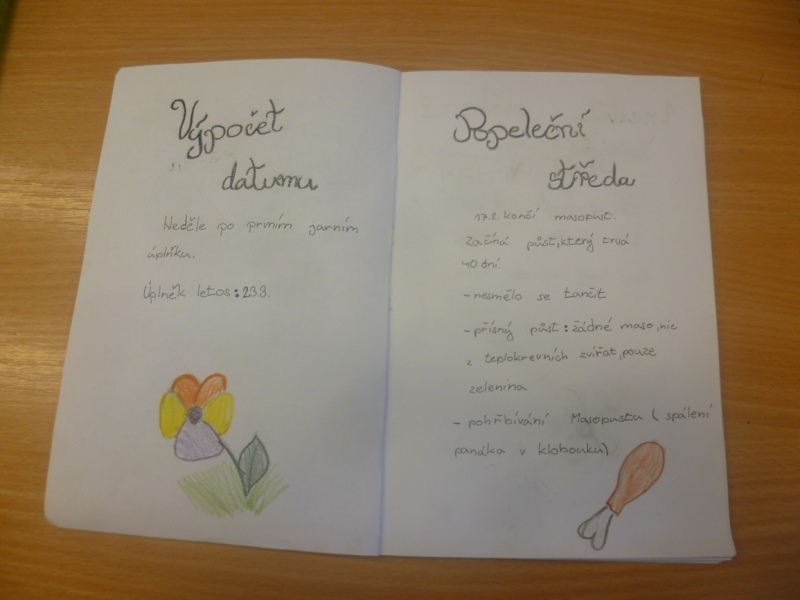 Výpočet
datumu
Neděle po prvním jarním
úplňku.
Úplněk letos: 23.3.
Popeleční
středa
17.2. končí masopust.
Začíná půst, který trvá
40 dní.
- nesmělo se tančit
- přísný půst: žádné maso, nic
z teplokrevních zvířat, pouze
zelenina
- pohřbívání Masopustu (spálení
panáka v klobouku)